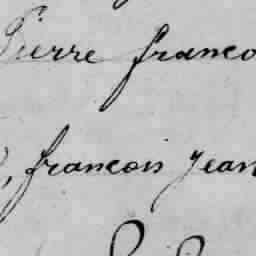 Pierre franco
, francois Jean